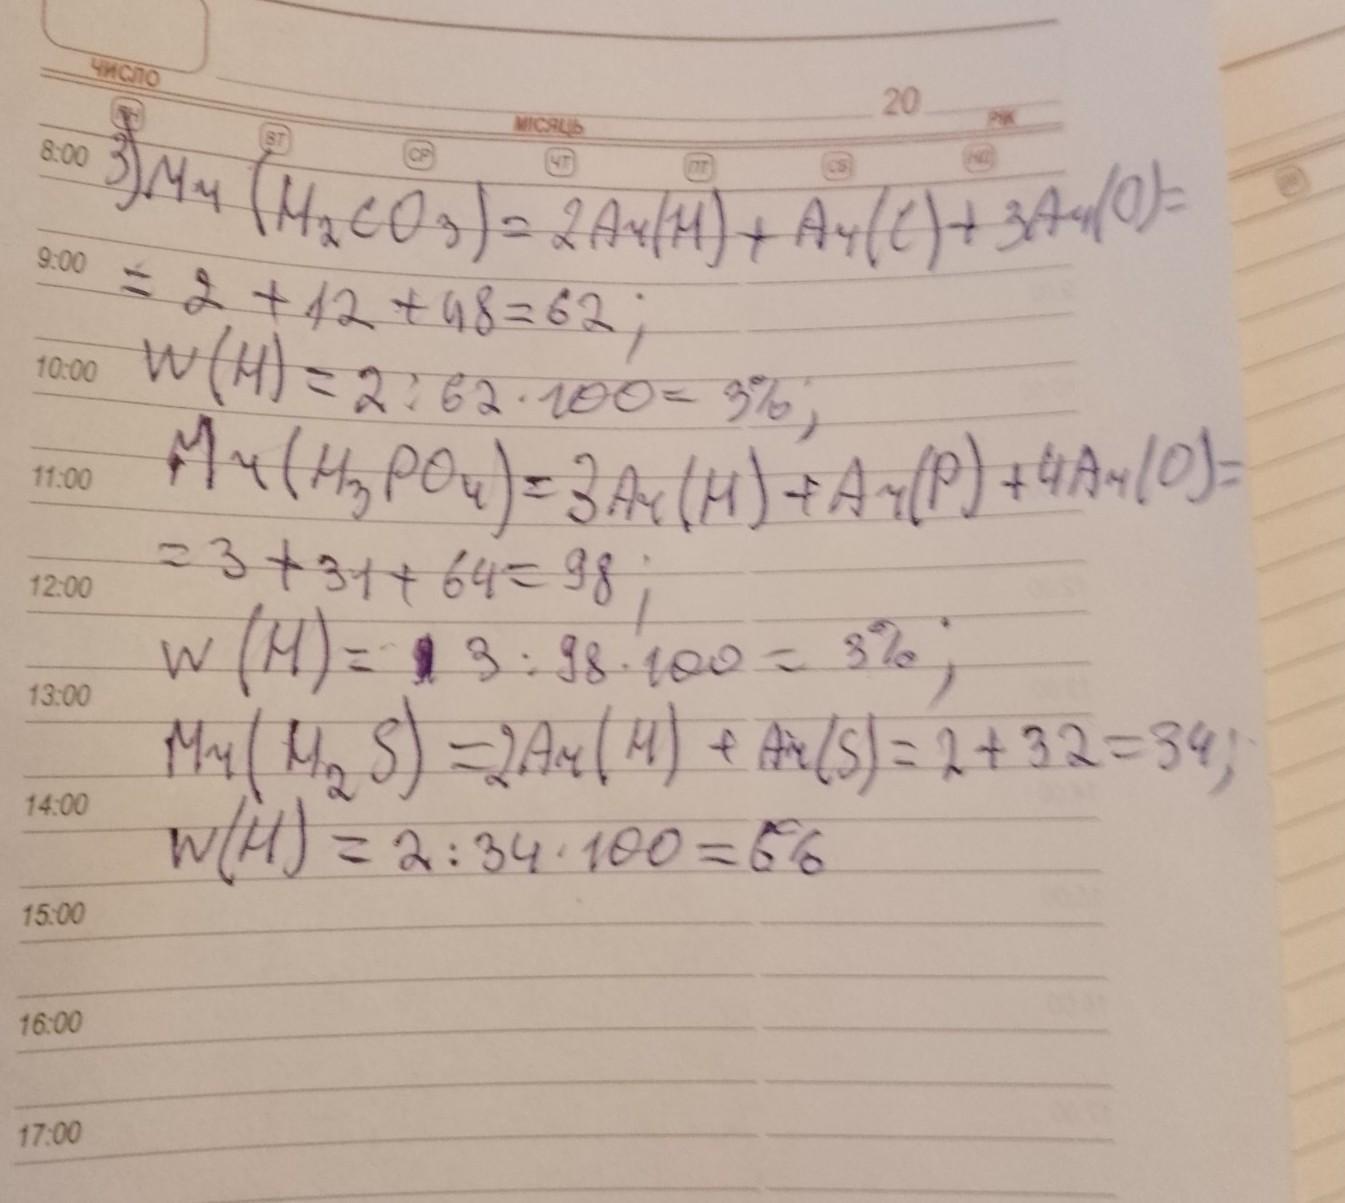 ЧИСЛО
МІСЯЦЬ
20
РІК
ПН ВТ СР ЧТ ПТ СБ НД
8:00
3) Mr (H₂CO₃) = 2Ar(H) + Ar(C) + 3Ar(O) =
9:00
= 2 + 12 + 48 = 62;
10:00
W(H) = 2 : 62 · 100 = 3%;
11:00
Mr (H₃PO₄) = 3Ar(H) + Ar(P) + 4Ar(O) =
= 3 + 31 + 64 = 98;
12:00
w (H) = 3 : 98 · 100 = 3%;
13:00
Mr (H₂S) = 2Ar(H) + Ar(S) = 2 + 32 = 34;
14:00
W(H) = 2 : 34 · 100 =
15:00
16:00
17:00